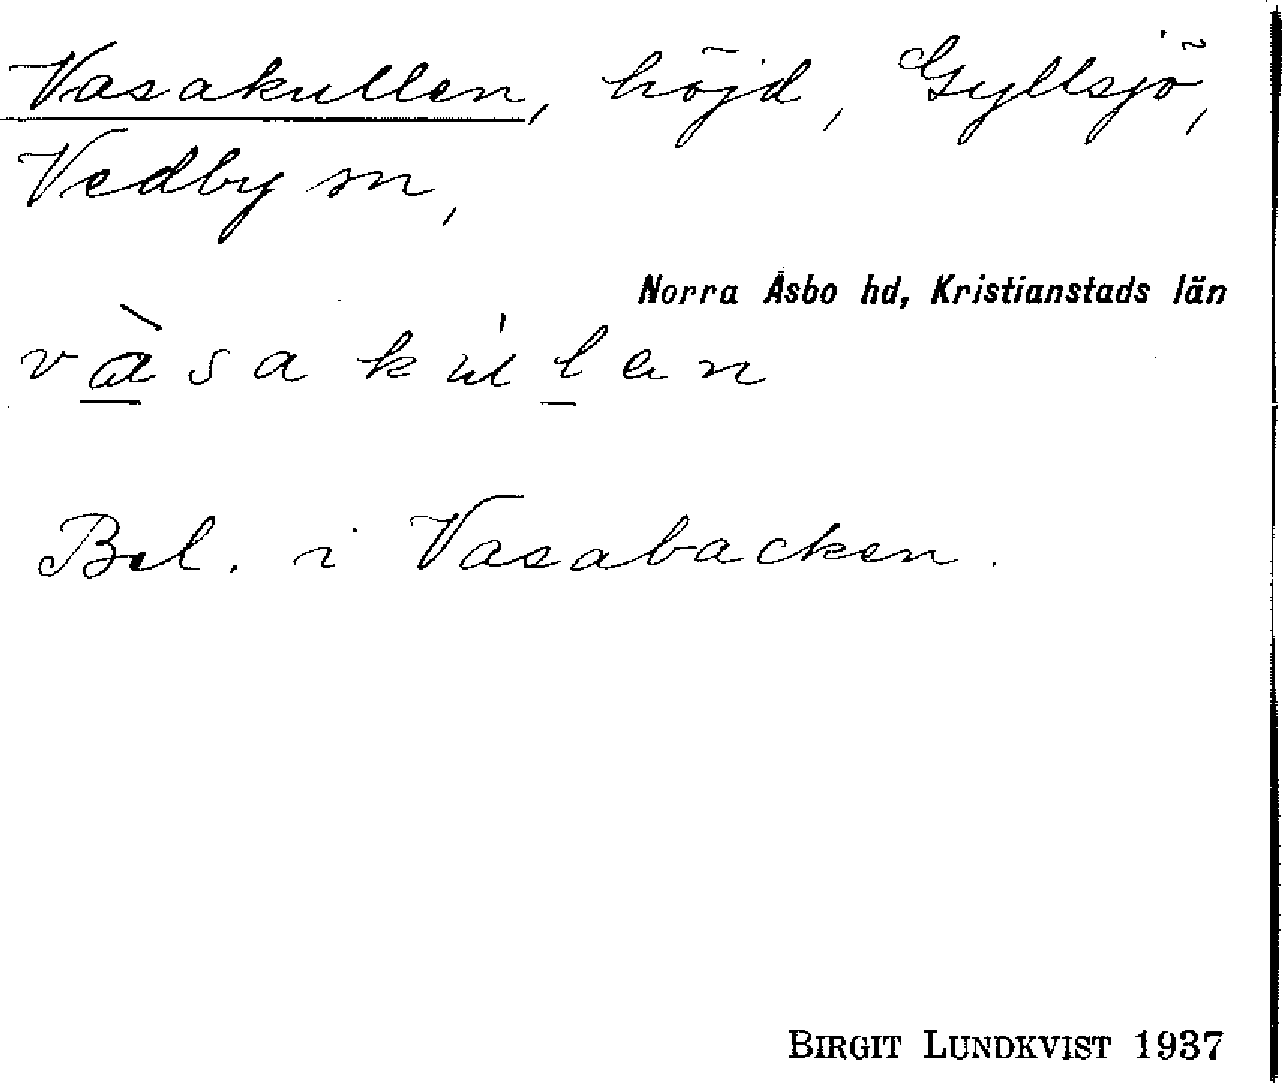 Vasakullen, höjd, Gyllsjö,
Vedby sn,
Norra Åsbo hd, Kristianstads län
v à s a k ú l e n
Bel. i Vasabacken.
BIRGIT LUNDKVIST 1937